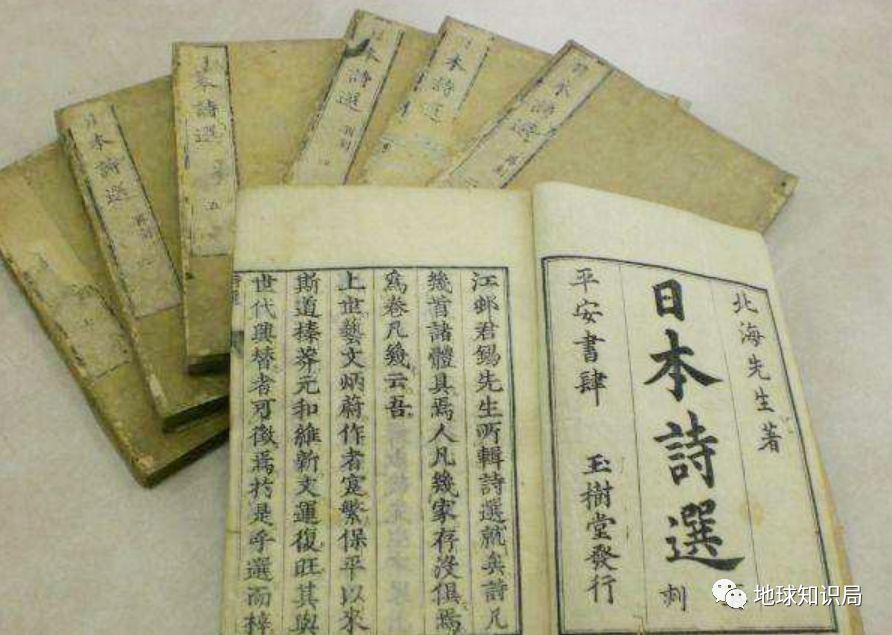 北海先生著
日本詩選
平安書肆 玉樹堂發行
江邨君錫先生所輯詩選就矣詩凡
幾首諸體具焉人凡幾家存沒俱焉
爲卷凡幾云吾
上世藝文炳蔚作者寔繁保平以來
斯道榛莽元和維新文運復旺其與
世代興替者可徵焉於是乎選而梓
日本詩選
日本詩選
日本詩選
本詩選 五
日本詩選
地球知识局